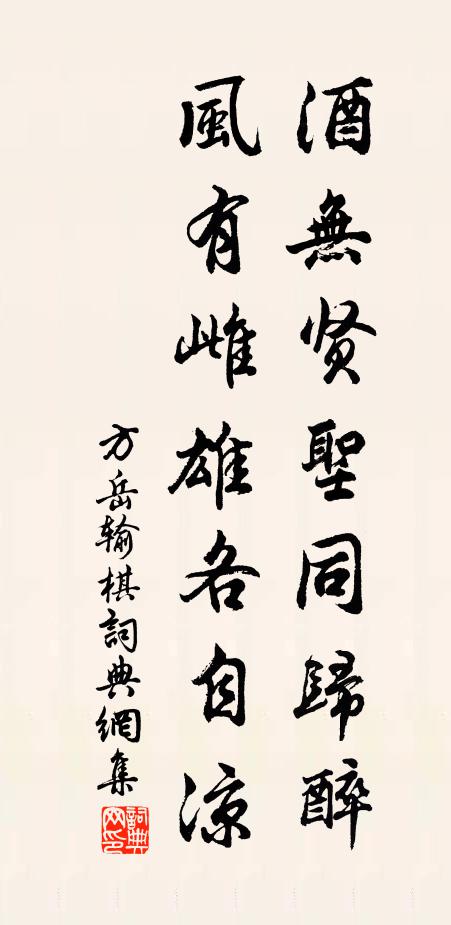 酒無贤聖同歸醉
風有雌雄各自凉
方岳输棋詞典網集
詞典網印